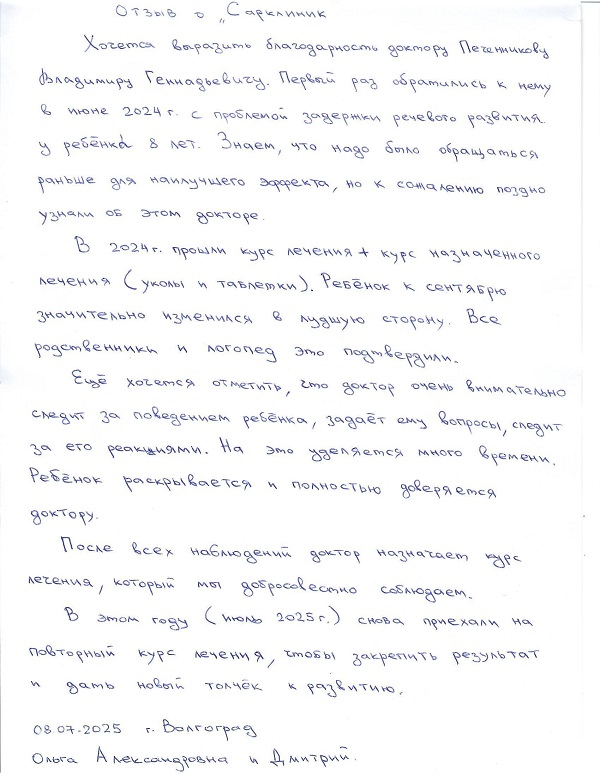 Отзыв о „Сарклиник
Хочется выразить благодарность доктору Печенникову
Владимиру Геннадьевичу. Первый раз обратились к нему
в июне 2024 г. с проблемой задержки речевого развития
у ребёнка 8 лет. Знаем, что надо было обращаться
раньше для наилучшего эффекта, но к сожалению поздно
узнали об этом докторе.
В 2024г. прошли курс лечения + курс назначенного
лечения (уколы и таблетки). Ребёнок к сентябрю
значительно изменился в лудшую сторону. Все
родственники и логопед это подтвердили.
Ещё хочется отметить, что доктор очень внимательно
следит за поведением ребёнка, задаёт ему вопросы, следит
за его реакциями. На это уделяется много времени.
Ребёнок раскрывается и полностью доверяется
доктору.
После всех наблюдений доктор назначает курс
лечения, который мы добросовестно соблюдаем.
В этом году (июль 2025г.) снова приехали на
повторный курс лечения, чтобы закрепить результат
и дать новый толчёк к развитию.
08.07.2025 г. Волгоград
Ольга Александровна и Дмитрий.